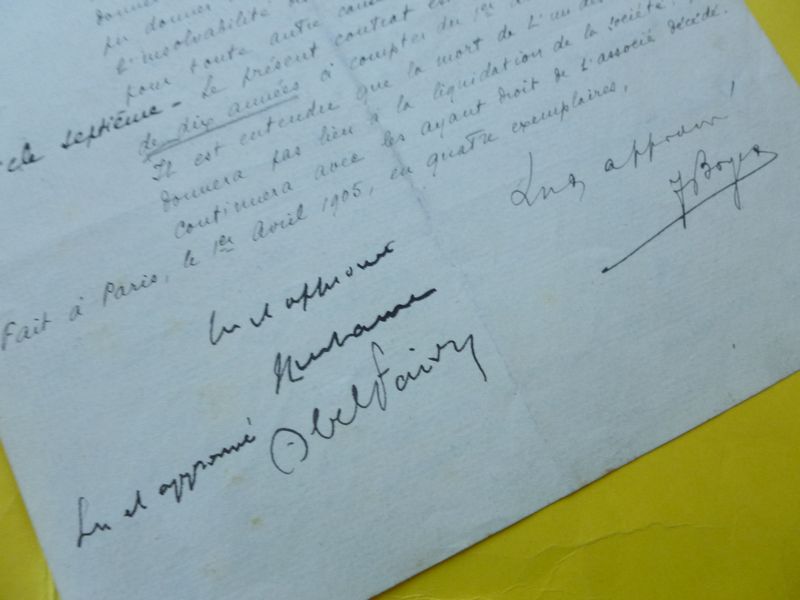 donner
l'insolvabilité
pour toute autre cause
cle septième - Le présent contrat est
de dix années à compter du 1er
Il est entendu que la mort de l'un des
donnera pas lieu à la liquidation de la société.
continuera avec les ayant droit de l'associé décédé.
Fait à Paris, le 1er Avril 1905, en quatre exemplaires,
Lu & approuvé
Lu et approuvé
Lu et approuvé
Abel Faivre